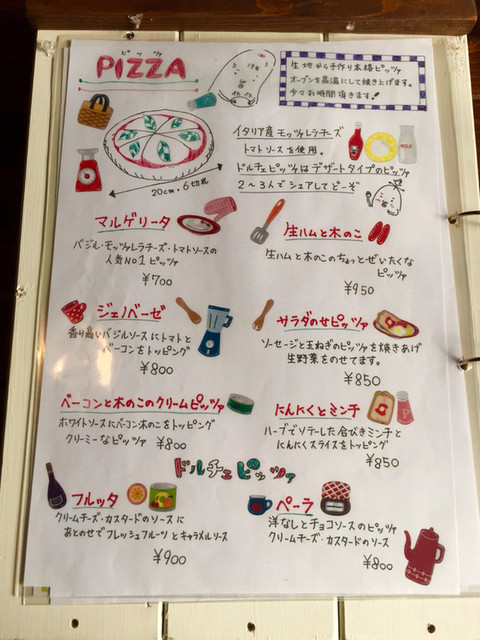 ピッツァ
PIZZA
生地から手作り本格ピッツァ
オーブンを高温にして焼き上げます。
少々お時間頂きます!
20cm・6切れ
イタリア産 モッツァレラチーズ
トマトソースを使用。
ドルチェピッツァはデザートタイプのピッツァ
2〜3人でシェアしてどーぞ
MILK
マルゲリータ
バジル・モッツァレラチーズ・トマトソースの
人気NO1ピッツァ
¥700
生ハムと木のこ
生ハムと木のこのちょっとぜいたくな
ピッツァ
¥950
ジェノベーゼ
香り高いバジルソースにトマトと
ベーコンをトッピング
¥800
サラダのせピッツァ
ソーセージと玉ねぎのピッツァを焼きあげ
生野菜をのせてます。
¥850
ベーコンと木のこのクリームピッツァ
ホワイトソースにベーコン木のこをトッピング
クリーミーなピッツァ ¥800
にんにくとミンチ
ハーブでソテーした合びきミンチと
にんにくスライスをトッピング
¥850
P
ドルチェピッツァ
フルッタ
クリームチーズ・カスタードのソースに
あとのせでフレッシュフルーツとキャラメルソース
¥900
ペーラ
洋なしとチョコソースのピッツァ
クリームチーズ・カスタードのソース
¥800